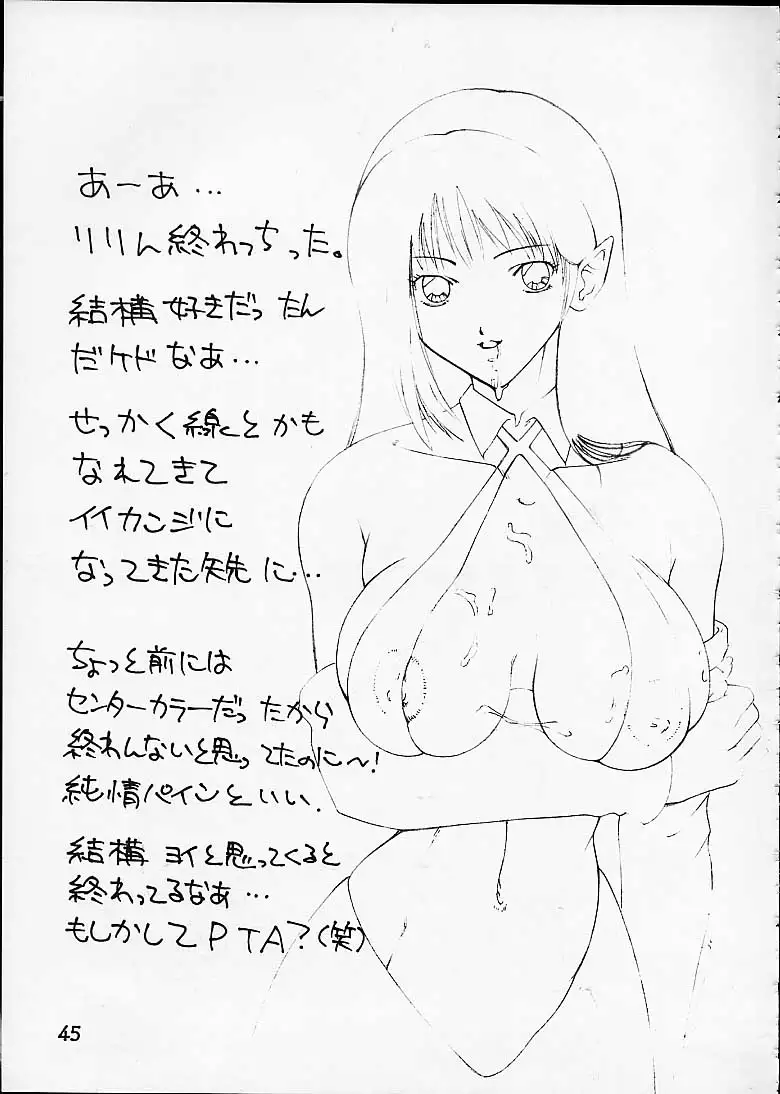 あーあ…
リリん終わっちった。
結構好きだったん
だケドなあ…
せっかく線とかも
なれてきて
イイカンジに
なってきた矢先に…
ちょっと前には
センターカラーだったから
終わんないと思ってたのに〜!
純情パインといい、
結構ヨイと思ってくると
終わってるなあ…
もしかしてPTA?(笑)
45